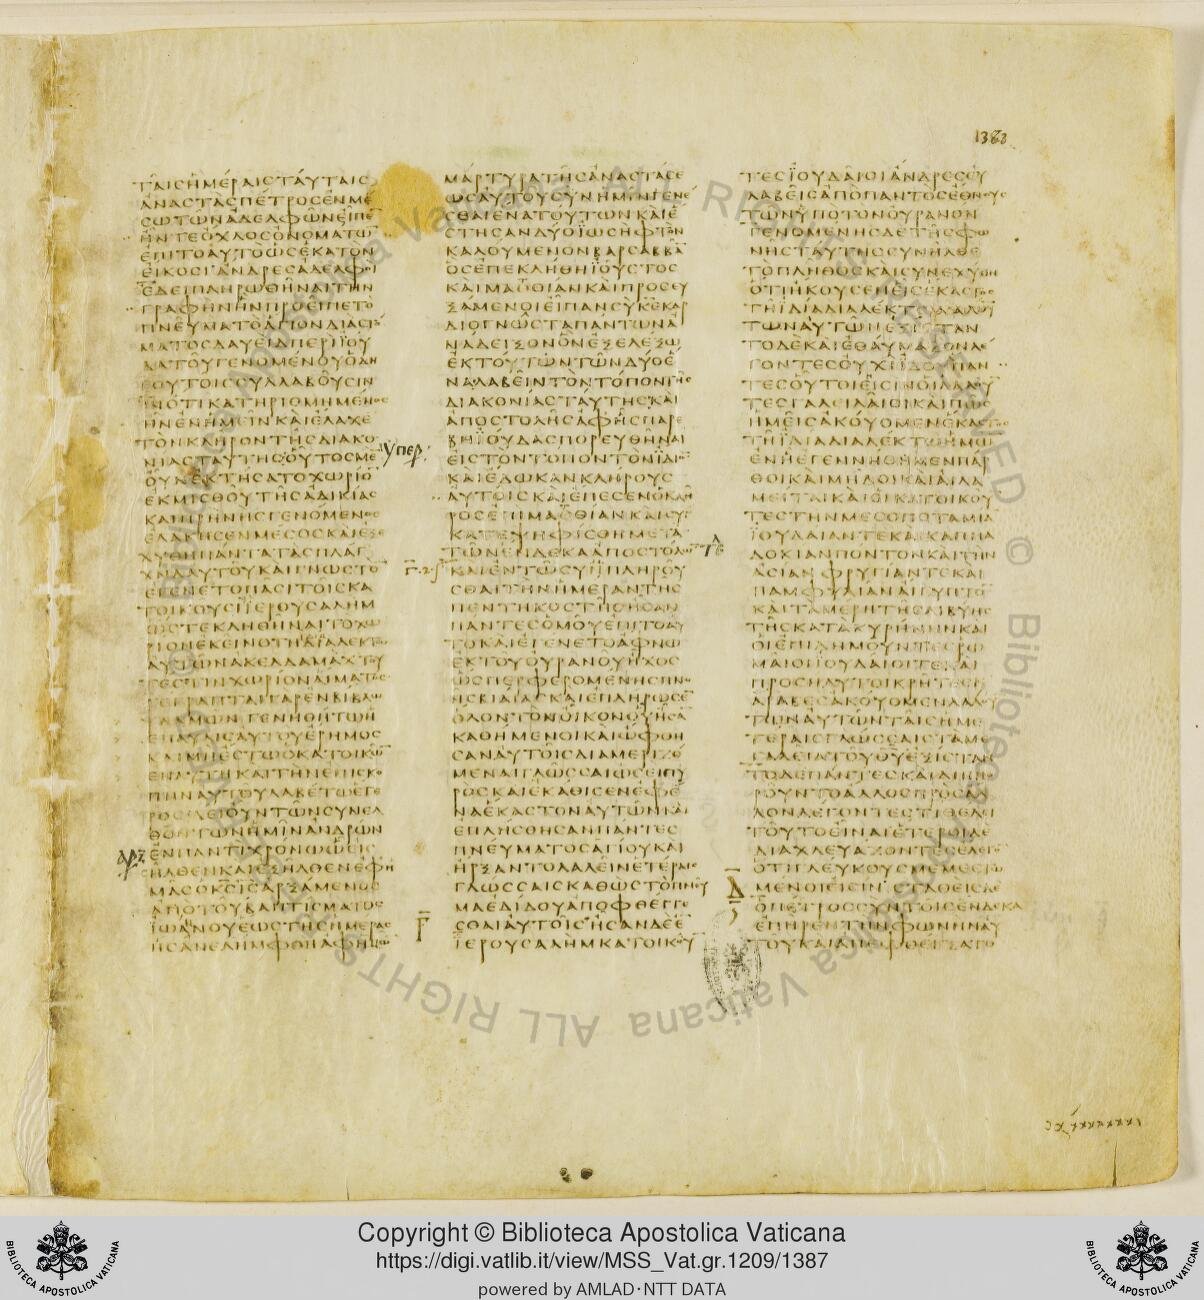 1386
ΤΑΙϹΗΜΕΡΑΙϹΤΑΥΤΑΙϹ
ΑΝΑϹΤΑϹΠΕΤΡΟϹΕΝΜΕ
ϹΩΤΩΝΑΔΕΛΦΩΝΕΙΠΕ
ΗΝΤΕΟΧΛΟϹΟΝΟΜΑΤΩ
ΕΠΙΤΟΑΥΤΟΩϹΕΚΑΤΟΝ
ΕΙΚΟϹΙΑΝΔΡΕϹΑΔΕΛΦΟΙ
ΕΔΕΙΠΛΗΡΩΘΗΝΑΙΤΗΝ
ΓΡΑΦΗΝΗΝΠΡΟΕΙΠΕΤΟ
ΠΝΕΥΜΑΤΟΑΓΙΟΝΔΙΑϹΤΟ
ΜΑΤΟϹΔΑΥΕΙΔΠΕΡΙΙΟΥ
ΔΑΤΟΥΓΕΝΟΜΕΝΟΥΟΔΗ
ΓΟΥΤΟΙϹϹΥΛΛΑΒΟΥϹΙΝ
ΙΝΟΤΙΚΑΤΗΡΙΘΜΗΜΕΝΟϹ
ΗΝΕΝΗΜΕΙΝΚΑΙΕΛΑΧΕ
ΤΟΝΚΛΗΡΟΝΤΗϹΔΙΑΚΟ
ΝΙΑϹΤΑΥΤΗϹΟΥΤΟϹΜΕ
ΟΥΝΕΚΤΗϹΑΤΟΧΩΡΙΟ
ΕΚΜΙϹΘΟΥΤΗϹΑΔΙΚΙΑϹ
ΚΑΙΠΡΗΝΗϹΓΕΝΟΜΕΝΟϹ
ΕΛΑΚΗϹΕΝΜΕϹΟϹΚΑΙΕΞΕ
ΧΥΘΗΠΑΝΤΑΤΑϹΠΛΑΓ
ΧΝΑΑΥΤΟΥΚΑΙΓΝΩϹΤΟ
ΕΓΕΝΕΤΟΠΑϹΙΤΟΙϹΚΑ
ΤΟΙΚΟΥϹΙΙΕΡΟΥϹΑΛΗΜ
ΩϹΤΕΚΛΗΘΗΝΑΙΤΟΧΩ
ΡΙΟΝΕΚΕΙΝΟΤΗΔΙΑΛΕΚΤΩ
ΑΥΤΩΝΑΚΕΛΔΑΜΑΧΤΟΥ
ΤΕϹΤΙΝΧΩΡΙΟΝΑΙΜΑΤΟϹ
ΓΕΓΡΑΠΤΑΙΓΑΡΕΝΒΙΒΛΩ
ΨΑΛΜΩΝΓΕΝΗΘΗΤΩΗ
ΕΠΑΥΛΙϹΑΥΤΟΥΕΡΗΜΟϹ
ΚΑΙΜΗΕϹΤΩΟΚΑΤΟΙΚΩ
ΕΝΑΥΤΗΚΑΙΤΗΝΕΠΙϹΚΟ
ΠΗΝΑΥΤΟΥΛΑΒΕΤΩΕΤΕ
ΡΟϹΔΕΙΟΥΝΤΩΝϹΥΝΕΛ
ΘΟΝΤΩΝΗΜΙΝΑΝΔΡΩΝ
ΕΝΠΑΝΤΙΧΡΟΝΩΩΕΙϹ
ΗΛΘΕΝΚΑΙΕΞΗΛΘΕΝΕΦΗ
ΜΑϹΟΚϹΙϹΑΡΞΑΜΕΝΟϹ
ΑΠΟΤΟΥΒΑΠΤΙϹΜΑΤΟϹ
ΙΩΑΝΟΥΕΩϹΤΗϹΗΜΕΡΑϹ
ΗϹΑΝΕΛΗΜΦΘΗΑΦΗΜΩ
ΥΠΕΡ
ΜΑΡΤΥΡΑΤΗϹΑΝΑϹΤΑϹΕ
ΩϹΑΥΤΟΥϹΥΝΗΜΙΝΓΕΝΕ
ϹΘΑΙΕΝΑΤΟΥΤΩΝΚΑΙΕ
ϹΤΗϹΑΝΔΥΟΙΩϹΗΦΤΟΝ
ΚΑΛΟΥΜΕΝΟΝΒΑΡϹΑΒΒΑ
ΟϹΕΠΕΚΛΗΘΗΙΟΥϹΤΟϹ
ΚΑΙΜΑΘΘΙΑΝΚΑΙΠΡΟϹΕΥ
ΞΑΜΕΝΟΙΕΙΠΑΝϹΥΚΕΚΑΡ
ΔΙΟΓΝΩϹΤΑΠΑΝΤΩΝΑ
ΝΑΔΕΙΞΟΝΟΝΕΞΕΛΕΞΩ
ΕΚΤΟΥΤΩΝΤΩΝΔΥΟΕ
ΝΑΛΑΒΕΙΝΤΟΝΤΟΠΟΝΤΗϹ
ΔΙΑΚΟΝΙΑϹΤΑΥΤΗϹΚΑΙ
ΑΠΟϹΤΟΛΗϹΑΦΗϹΠΑΡΕ
ΒΗΙΟΥΔΑϹΠΟΡΕΥΘΗΝΑΙ
ΕΙϹΤΟΝΤΟΠΟΝΤΟΝΙΔΙΟ
ΚΑΙΕΔΩΚΑΝΚΛΗΡΟΥϹ
ΑΥΤΟΙϹΚΑΙΕΠΕϹΕΝΟΚΛΗ
ΡΟϹΕΠΙΜΑΘΘΙΑΝΚΑΙϹΥΓ
ΚΑΤΕΨΗΦΙϹΘΗΜΕΤΑ
ΤΩΝΕΝΔΕΚΑΑΠΟϹΤΟΛΩ
ΚΑΙΕΝΤΩϹΥΜΠΛΗΡΟΥ
ϹΘΑΙΤΗΝΗΜΕΡΑΝΤΗϹ
ΠΕΝΤΗΚΟϹΤΗϹΗϹΑΝ
ΠΑΝΤΕϹΟΜΟΥΕΠΙΤΟΑΥ
ΤΟΚΑΙΕΓΕΝΕΤΟΑΦΝΩ
ΕΚΤΟΥΟΥΡΑΝΟΥΗΧΟϹ
ΩϹΠΕΡΦΕΡΟΜΕΝΗϹΠΝΟ
ΗϹΒΙΑΙΑϹΚΑΙΕΠΛΗΡΩϹΕ
ΟΛΟΝΤΟΝΟΙΚΟΝΟΥΗϹΑ
ΚΑΘΗΜΕΝΟΙΚΑΙΩΦΘΗ
ϹΑΝΑΥΤΟΙϹΔΙΑΜΕΡΙΖΟ
ΜΕΝΑΙΓΛΩϹϹΑΙΩϹΕΙΠΥ
ΡΟϹΚΑΙΕΚΑΘΙϹΕΝΕΦΕ
ΝΑΕΚΑϹΤΟΝΑΥΤΩΝΚΑΙ
ΕΠΛΗϹΘΗϹΑΝΠΑΝΤΕϹ
ΠΝΕΥΜΑΤΟϹΑΓΙΟΥΚΑΙ
ΗΡΞΑΝΤΟΛΑΛΕΙΝΕΤΕΡΑΙϹ
ΓΛΩϹϹΑΙϹΚΑΘΩϹΤΟΠΝΕΥ
ΜΑΕΔΙΔΟΥΑΠΟΦΘΕΓΓΕ
ϹΘΑΙΑΥΤΟΙϹΗϹΑΝΔΕΕ
ΙΕΡΟΥϹΑΛΗΜΚΑΤΟΙΚΟΥ
Γ
ΤΕϹΙΟΥΔΑΙΟΙΑΝΔΡΕϹΕΥ
ΛΑΒΕΙϹΑΠΟΠΑΝΤΟϹΕΘΝΟΥϹ
ΤΩΝΥΠΟΤΟΝΟΥΡΑΝΟΝ
ΓΕΝΟΜΕΝΗϹΔΕΤΗϹΦΩ
ΝΗϹΤΑΥΤΗϹϹΥΝΗΛΘΕ
ΤΟΠΛΗΘΟϹΚΑΙϹΥΝΕΧΥΘΗ
ΟΤΙΗΚΟΥϹΕΝΕΙϹΕΚΑϹΤΟϹ
ΤΗΙΔΙΑΔΙΑΛΕΚΤΩΛΑΛΟΥ
ΤΩΝΑΥΤΩΝΕΞΙϹΤΑΝ
ΤΟΔΕΚΑΙΕΘΑΥΜΑΖΟΝΛΕ
ΓΟΝΤΕϹΟΥΧΙΙΔΟΥΠΑΝ
ΤΕϹΟΥΤΟΙΕΙϹΙΝΟΙΛΑΛΟΥ
ΤΕϹΓΑΛΕΙΛΑΙΟΙΚΑΙΠΩϹ
ΗΜΕΙϹΑΚΟΥΟΜΕΝΕΚΑϹΤΟϹ
ΤΗΙΔΙΑΔΙΑΛΕΚΤΩΗΜΩ
ΕΝΗΕΓΕΝΝΗΘΗΜΕΝΠΑΡ
ΘΟΙΚΑΙΜΗΔΟΙΚΑΙΑΙΛΑ
ΜΕΙΤΑΙΚΑΙΟΙΚΑΤΟΙΚΟΥ
ΤΕϹΤΗΝΜΕϹΟΠΟΤΑΜΙΑ
ΙΟΥΔΑΙΑΝΤΕΚΑΙΚΑΠΠΑ
ΔΟΚΙΑΝΠΟΝΤΟΝΚΑΙΤΗΝ
ΑϹΙΑΝΦΡΥΓΙΑΝΤΕΚΑΙ
ΠΑΜΦΥΛΙΑΝΑΙΓΥΠΤΟ
ΚΑΙΤΑΜΕΡΗΤΗϹΛΙΒΥΗϹ
ΤΗϹΚΑΤΑΚΥΡΗΝΗΝΚΑΙ
ΟΙΕΠΙΔΗΜΟΥΝΤΕϹΡΩ
ΜΑΙΟΙΙΟΥΔΑΙΟΙΤΕΚΑΙ
ΠΡΟϹΗΛΥΤΟΙΚΡΗΤΕϹΚ
ΑΡΑΒΕϹΑΚΟΥΟΜΕΝΛΑΛΟΥ
ΤΩΝΑΥΤΩΝΤΑΙϹΗΜΕ
ΤΕΡΑΙϹΓΛΩϹϹΑΙϹΤΑΜΕ
ΓΑΛΕΙΑΤΟΥΘΥΕΞΙϹΤΑΝ
ΤΟΔΕΠΑΝΤΕϹΚΑΙΔΙΗΠΟ
ΡΟΥΝΤΟΑΛΛΟϹΠΡΟϹΑΛ
ΛΟΝΛΕΓΟΝΤΕϹΤΙΘΕΛΕΙ
ΤΟΥΤΟΕΙΝΑΙΕΤΕΡΟΙΔΕ
ΔΙΑΧΛΕΥΑΖΟΝΤΕϹΕΛΕΓΟ
ΟΤΙΓΛΕΥΚΟΥϹΜΕΜΕϹΤΩ
ΜΕΝΟΙΕΙϹΙΝϹΤΑΘΕΙϹΔΕ
ΟΠΕΤΡΟϹϹΥΝΤΟΙϹΕΝΔΕΚΑ
ΕΠΗΡΕΝΤΗΝΦΩΝΗΝΑΥ
ΤΟΥΚΑΙΑΠΕΦΘΕΓΞΑΤΟ
Δ
Copyright © Biblioteca Apostolica Vaticana
https://digi.vatlib.it/view/MSS_Vat.gr.1209/1387
powered by AMLAD·NTT DATA
BIBLIOTECA APOSTOLICA VATICANA
BIBLIOTECA APOSTOLICA VATICANA